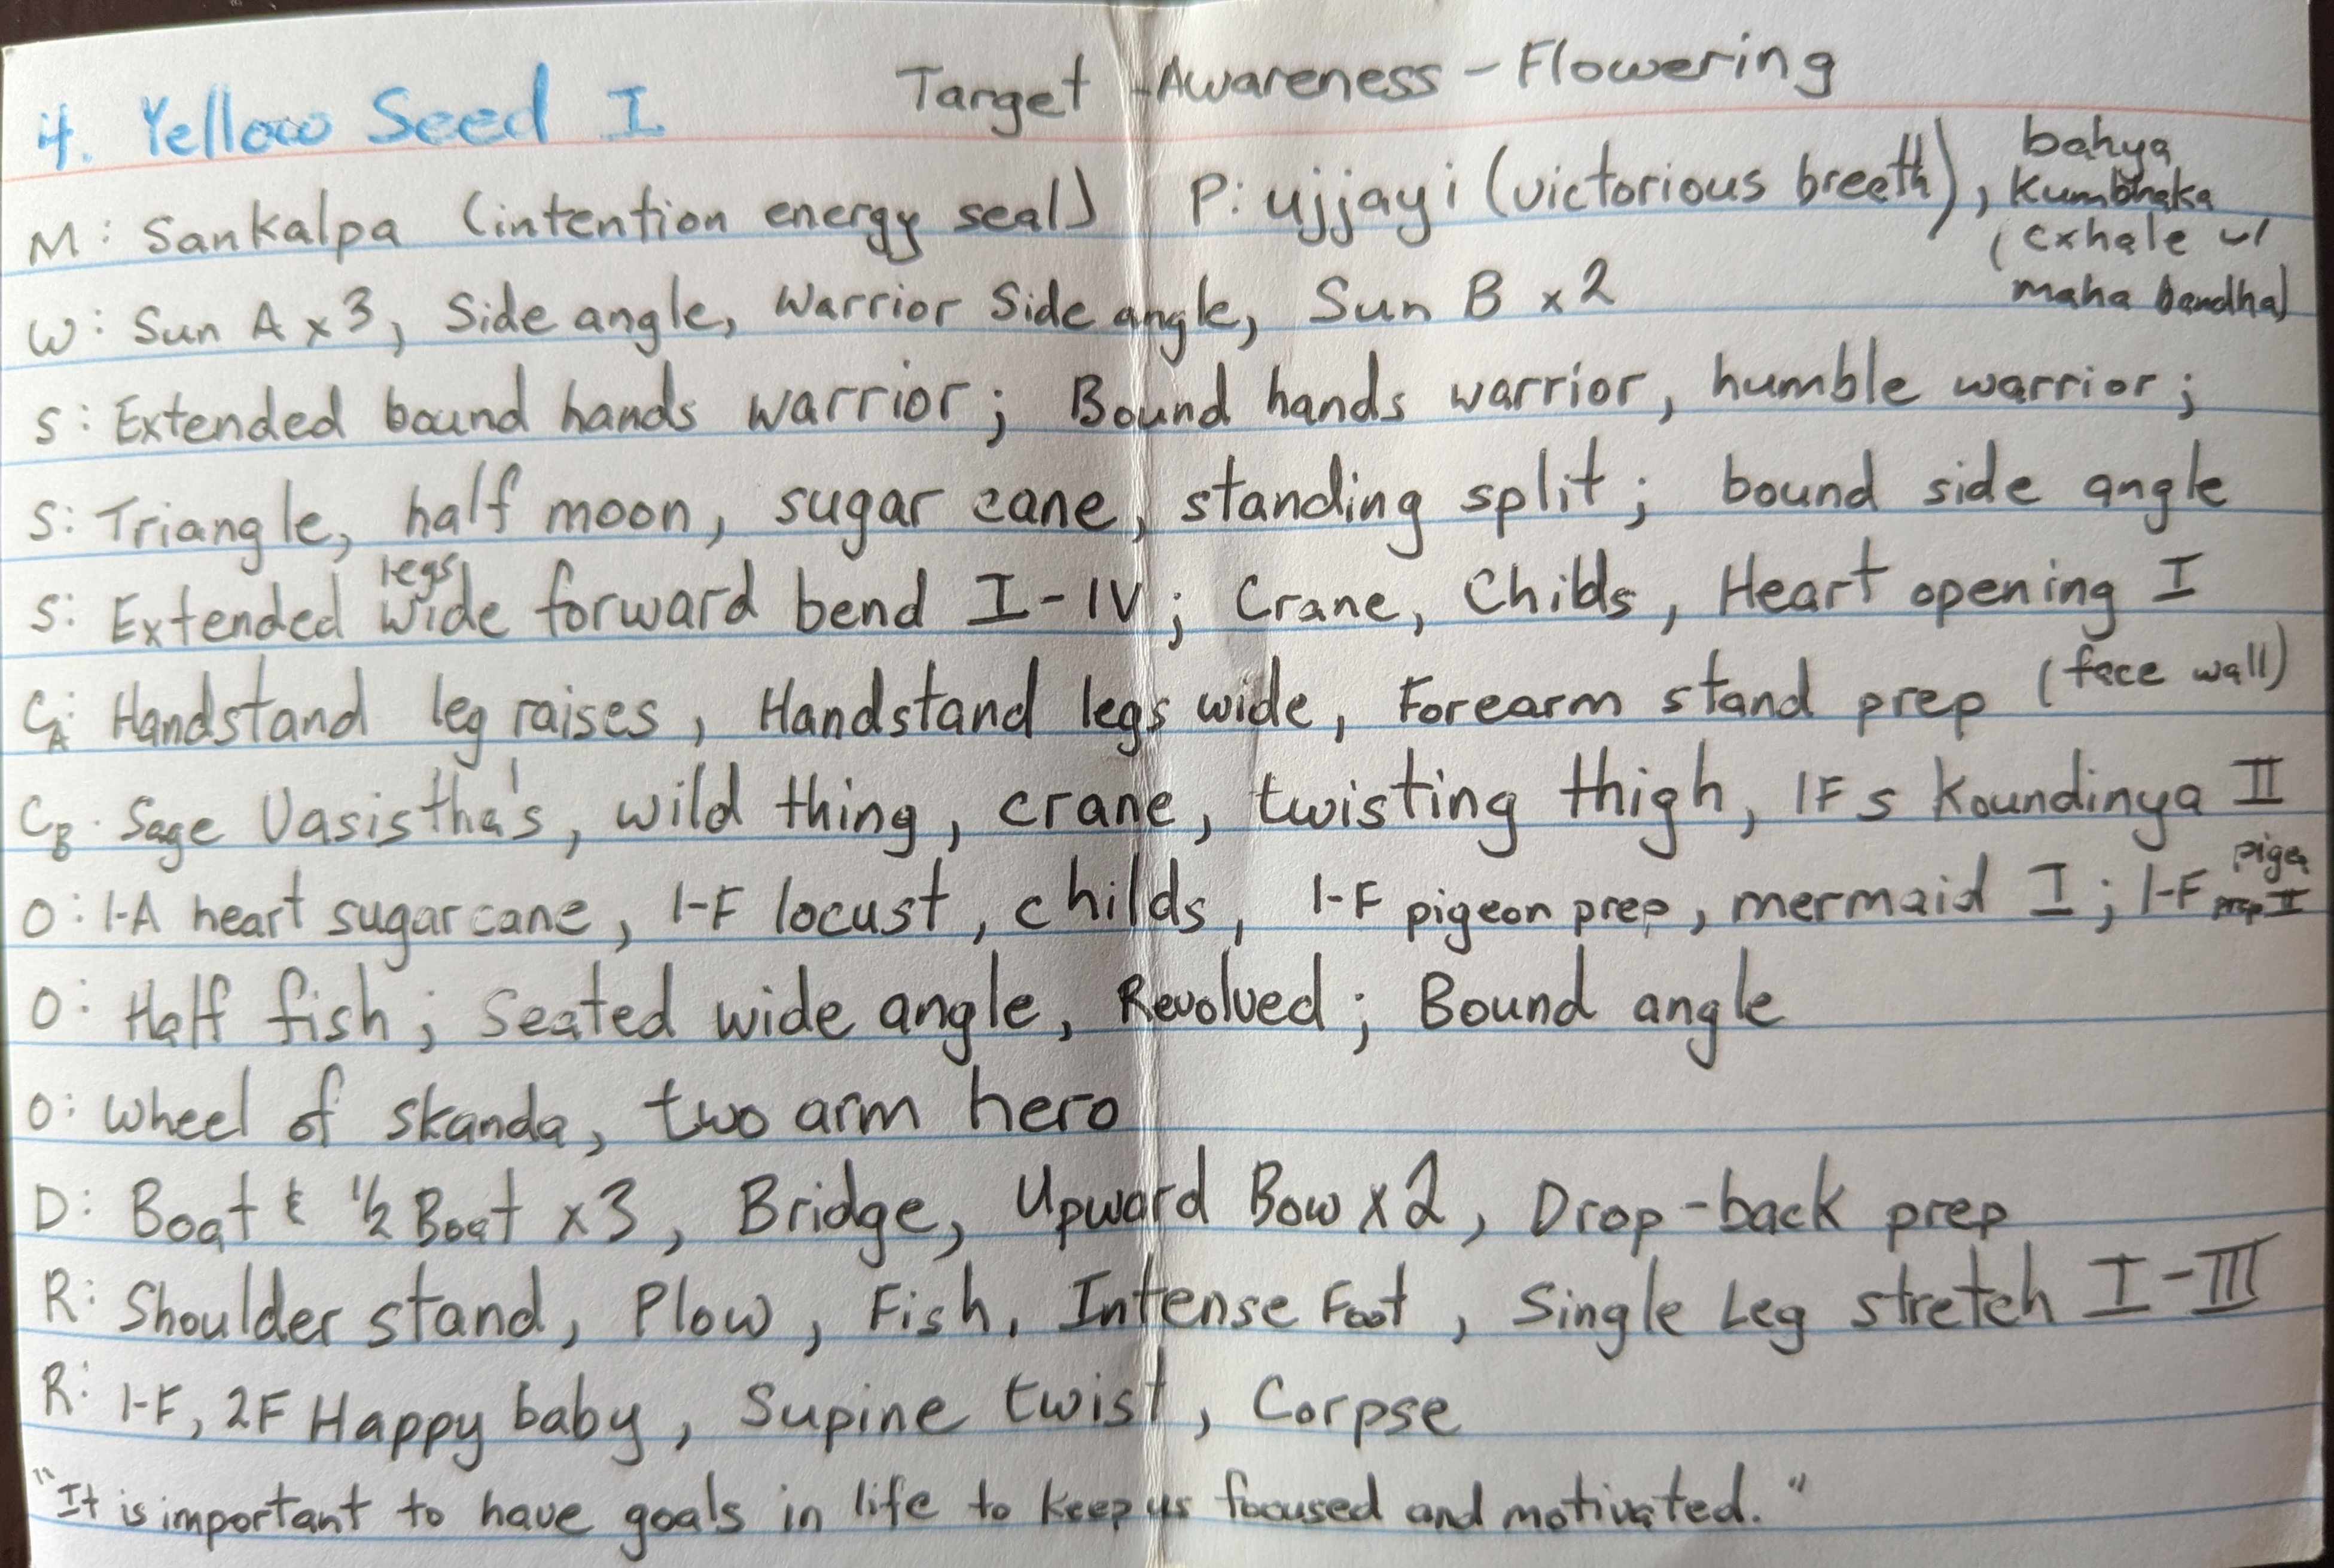 4. Yellow Seed I Target - Awareness - Flowering
M: Sankalpa (intention energy seal) P: ujjayi (victorious breath), bahya
Kumbhaka
(exhale w/
maha bandha)
W: Sun A x 3, Side angle, Warrior Side angle, Sun B x 2
S: Extended bound hands warrior; Bound hands warrior, humble warrior;
S: Triangle, half moon, sugar cane, standing split; bound side angle
S: Extended legs wide forward bend I-IV; Crane, Childs, Heart opening I
CA: Handstand leg raises, Handstand legs wide, Forearm stand prep (face wall)
CB: Sage Vasistha's, wild thing, crane, twisting thigh, 1F s Koundinya II
O: 1-A heart sugar cane, 1-F locust, childs, 1-F pigeon prep, mermaid I; 1-F prep II
O: Half fish; Seated wide angle, Revolved; Bound angle
O: Wheel of skanda, two arm hero
D: Boat & 1/2 Boat x3, Bridge, Upward Bow x 2, Drop-back prep
R: Shoulder stand, Plow, Fish, Intense Foot, Single Leg stretch I-III
R: 1-F, 2F Happy baby, Supine twist, Corpse
"It is important to have goals in life to keep us focused and motivated."